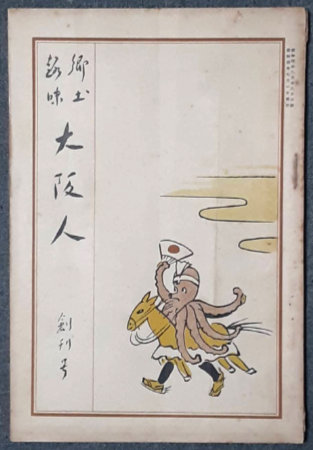 郷土
趣味
大阪人
創刊号